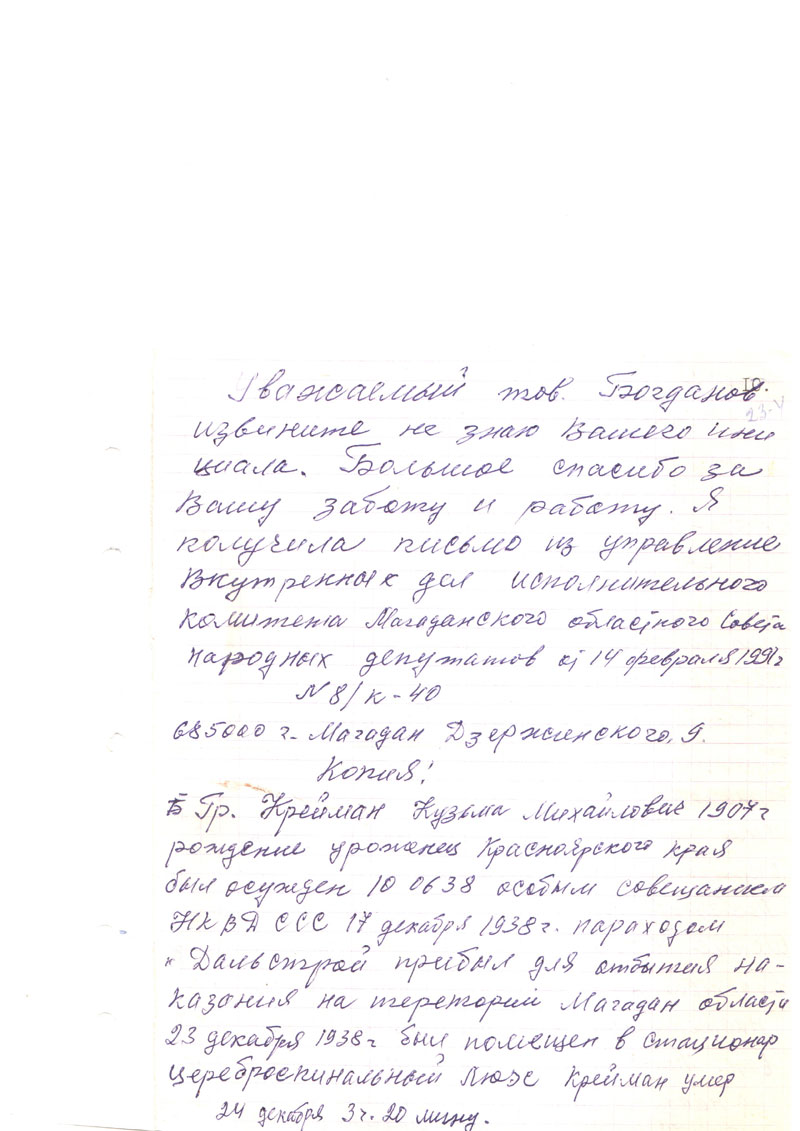 Уважаемый тов. Богданов
10.
23-V
извините не знаю Вашего ини
циала. Большое спасибо за
Вашу заботу и работу. Я
получила письмо из управление
Внутренных дел исполнительного
комитета Магаданского областного Совета
народных депутатов от 14 февраля 1991г
N 8/к-40
685000 г. Магадан Дзержинского, 9.
Копия!
Гр. Крейман Кузьма Михайлович 1907 г
рождение уроженец Красноярского края
был осужден 10 06 38 особым совещанием
НКВД ССС 17 декабря 1938г. пароходом
" Дальстрой прибыл для отбытия на-
казания на територии Магадан области
23 декабря 1938г был помещен в стационар
цереброспинальный Крейман умер
24 декабря 3ч. 20 мину.